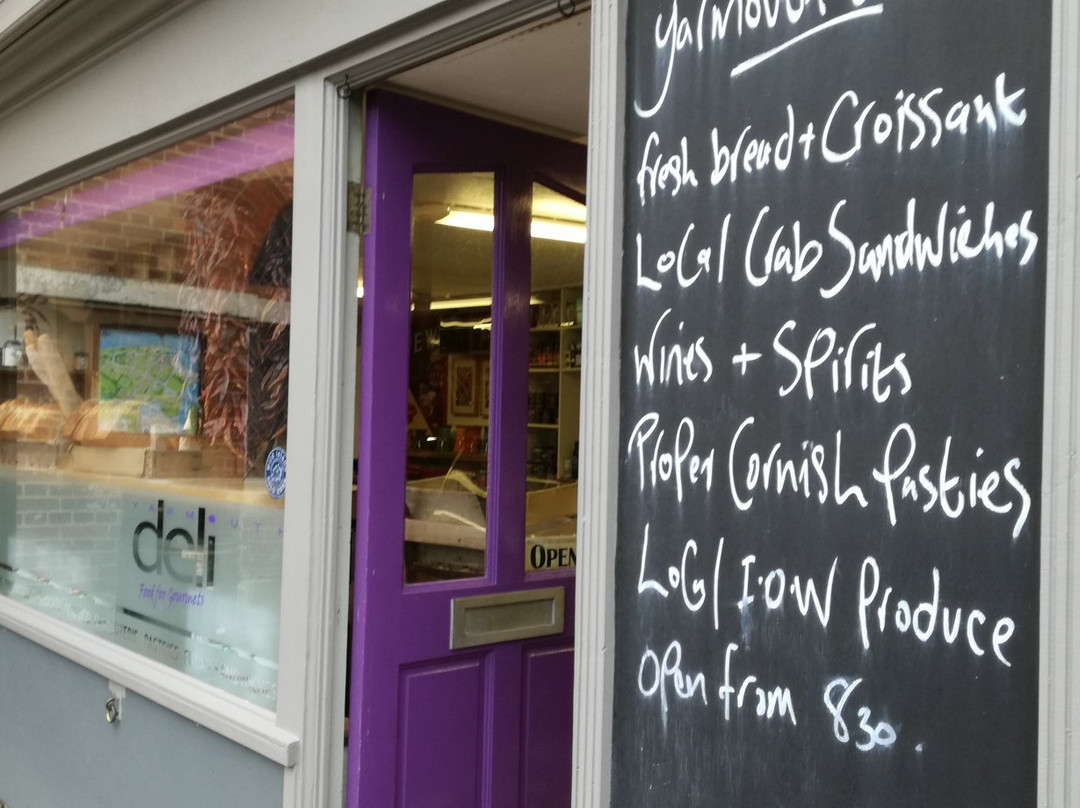 Yarmouth
fresh bread + Croissant
Local Crab Sandwiches
Wines + Spirits
Proper Cornish Pasties
Local I.O.W Produce
Open from 830.
OPEN
YARMOUTH
deli
Food for Gourmets